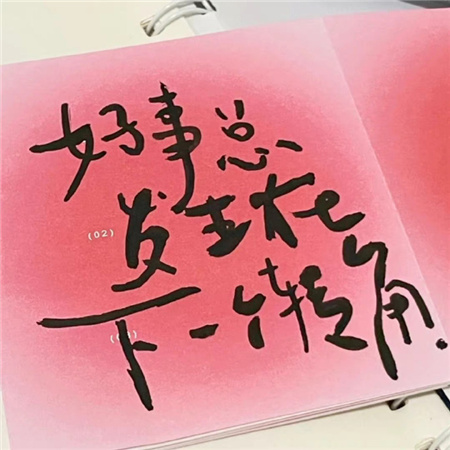 好事总
(02)
发生在
下一个转角.